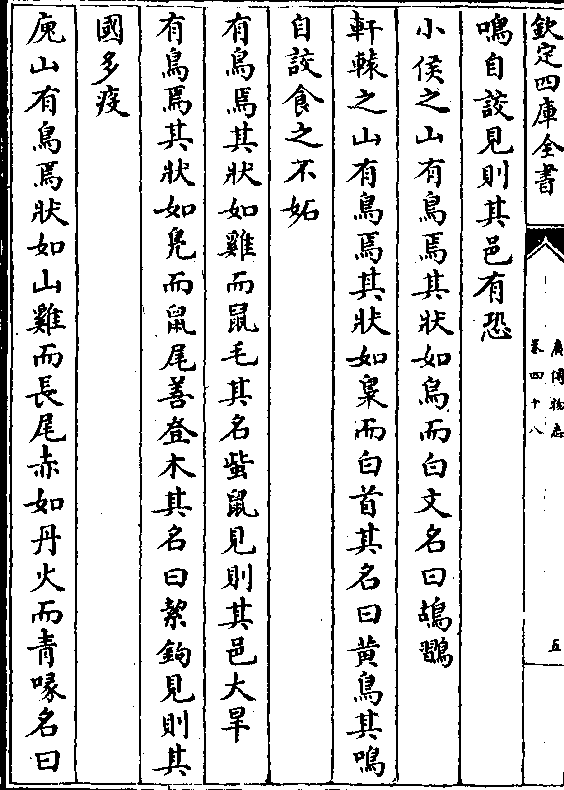 欽定四庫全書
廣博物志
卷四十八
五
鳴自詨見則其邑有恐
小侯之山有鳥焉其狀如烏而白文名曰鴣鸐
軒轅之山有鳥焉其狀如梟而白首其名曰黃鳥其鳴
自詨食之不妬
有鳥焉其狀如雞而鼠毛其名蚩鼠見則其邑大旱
有鳥焉其狀如鳧而鼠尾善登木其名曰絜鉤見則其
國多疫
鬼山有鳥焉狀如山雞而長尾赤如丹火而青喙名曰